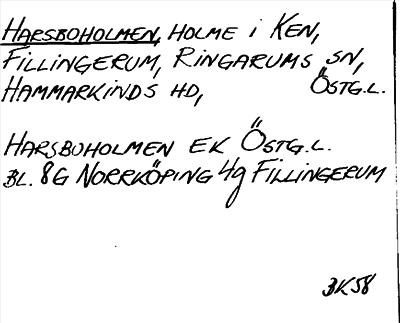 HARSBOHOLMEN, HOLME i KEN,
FILLINGERUM, RINGARUMS SN,
HAMMARKINDS HD, ÖSTG.L.
HARSBUHOLMEN EK ÖSTG.L.
BL. 8G NORRKÖPING 4g FILLINGERUM
BK58